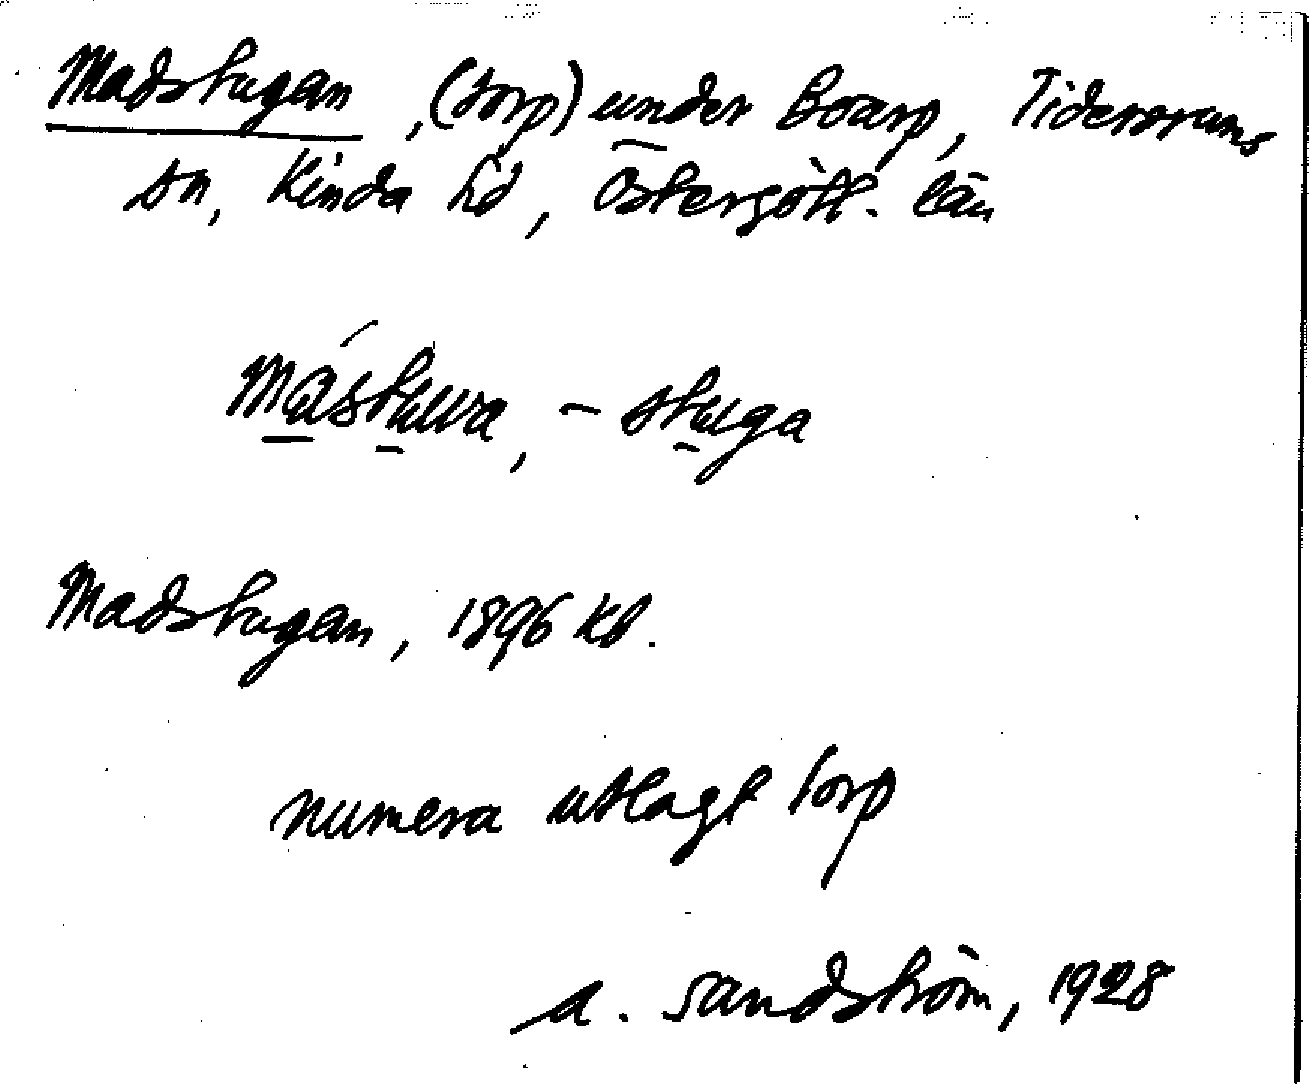 Madstugan, (torp) under Boarp, Tidersrums
sn, Kinda hd, Östergötl. län
Mástuwa, - stuga
Madstugan, 1896 kb.
numera utlagt torp
A. Sandström, 1928